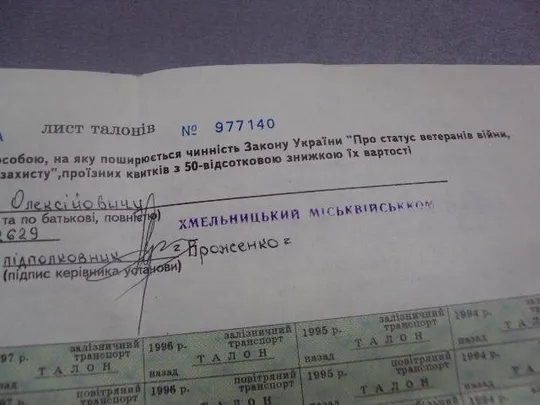 А лист талонів № 977140
особою, на яку поширюється чинність Закону України "Про статус ветеранів війни,
захисту",проїзних квитків з 50-відсотковою знижкою їх вартості
Олексійовичу
та по батькові, повністю)
ХМЕЛЬНИЦЬКИЙ МІСЬКВІЙСЬККОМ
2629
підполковник
(підпис керівника установи)
97 р. залізничний транспорт 1996 р. залізничний транспорт 1995 р. залізничний транспорт 1994 р.
ТАЛОН ТАЛОН ТАЛОН ТАЛОН
назад назад назад
97 р. повітряний транспорт 1996 р. повітряний транспорт 1995 р. повітряний 1994 р.
ТАЛОН